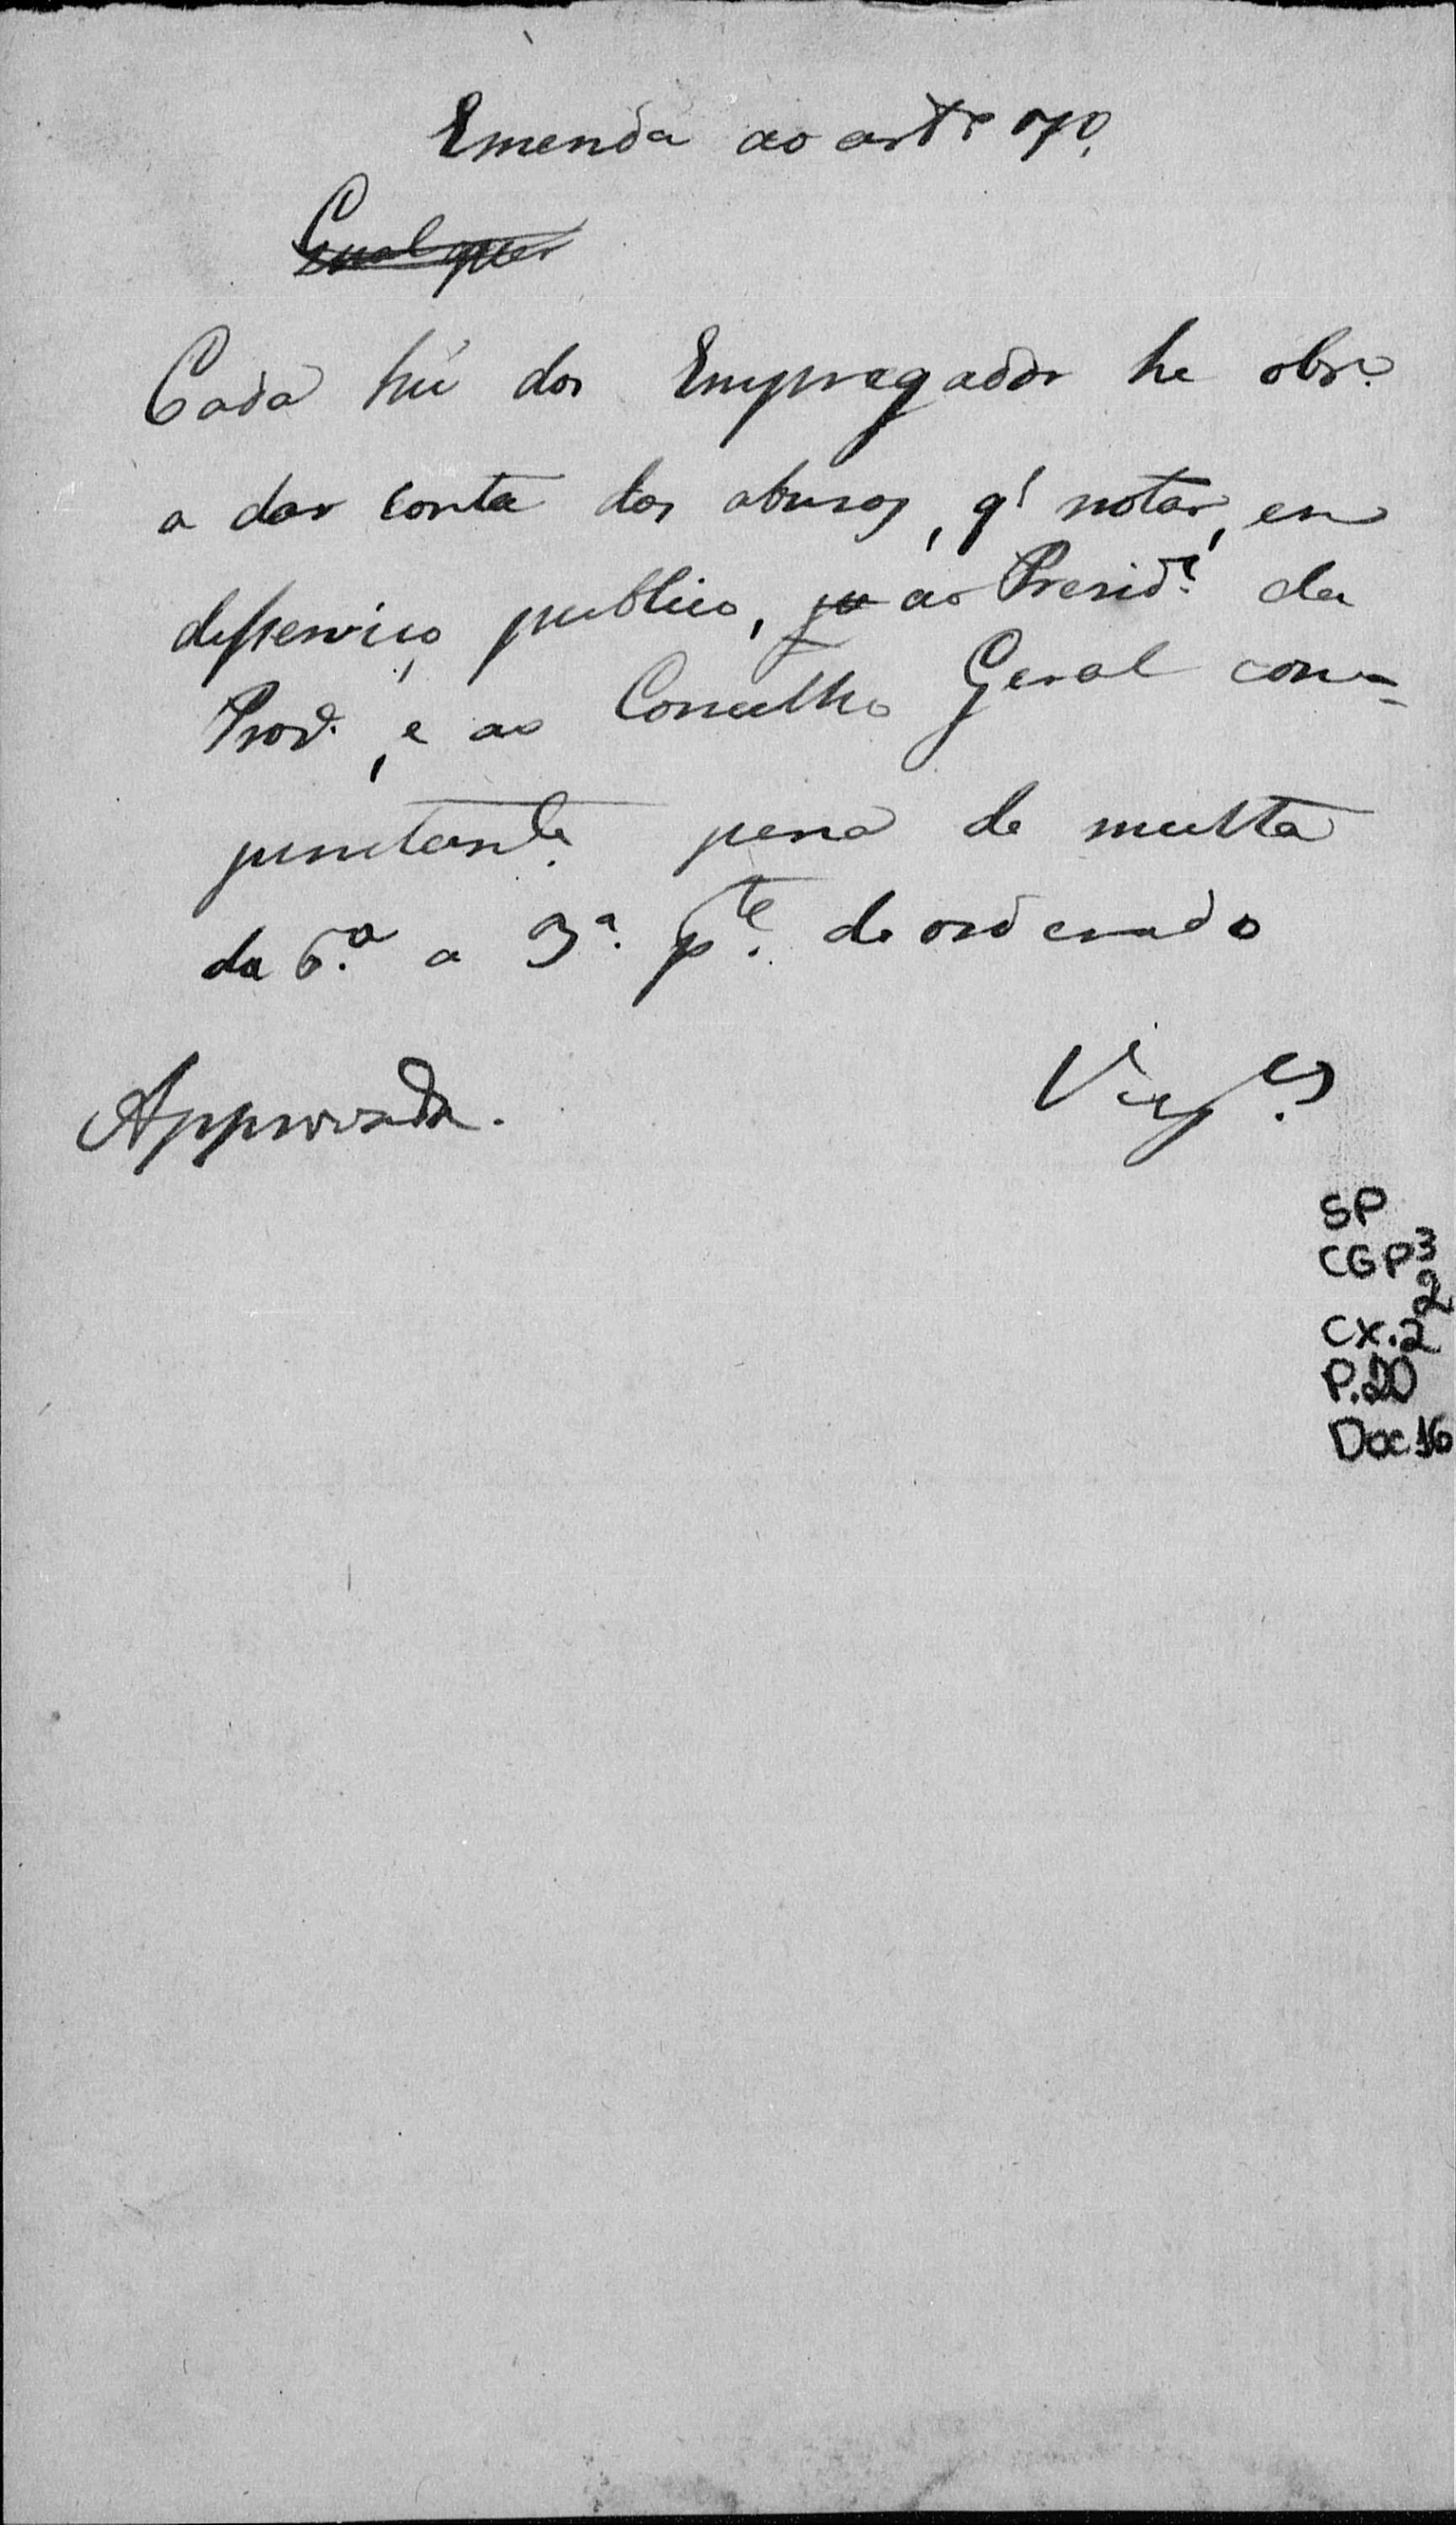 Emenda ao art.º 70.
Qualquer
Cada hũ dos Empregados he obr.º
a dar conta dos abusos, q' notar, em
desserviço publico, ao Presid.e da
Prov.a, e ao Concelho Geral con-
junctam.te pena de multa
da 6.ª a 3.ª p.te do ordenado
Approvada.
SP
CGP3
2
CX.2
P.20
Doc 16